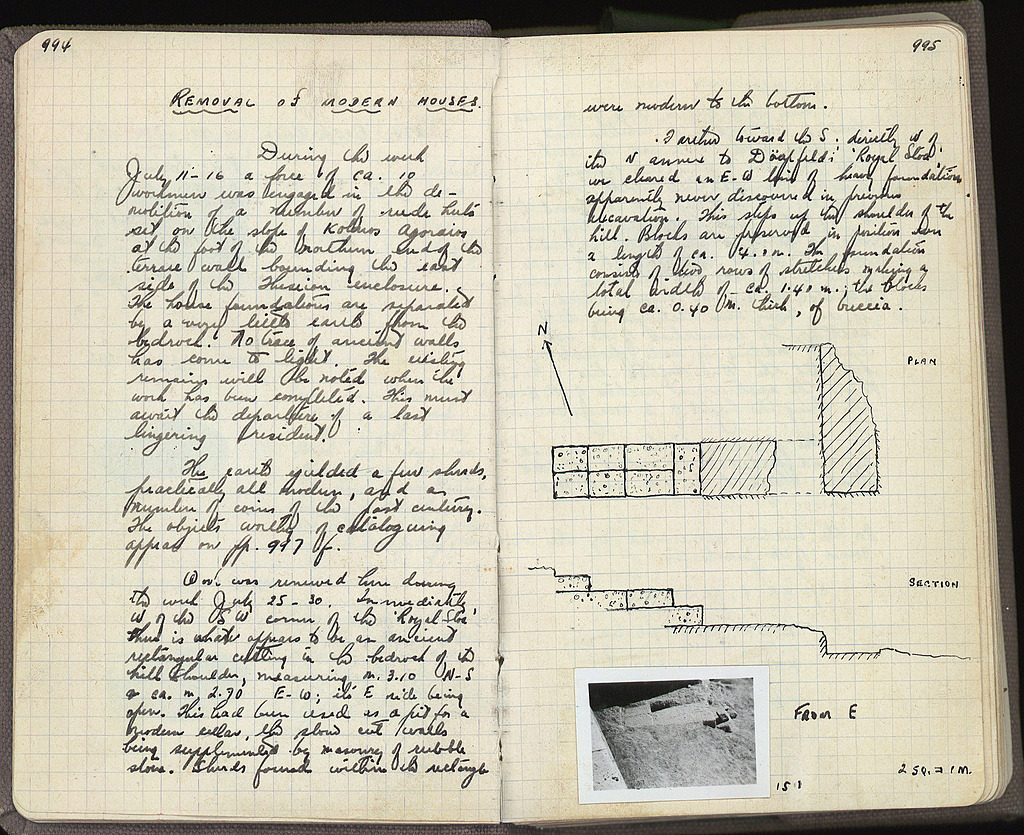 994
REMOVAL OF MODERN HOUSES.
During the week
July 11-16 a force of ca. 10
workmen was engaged in the de-
molition of a number of rude huts
set on the slope of Kolonos Agoraios
at the foot of the northern end of the
terrace wall bounding the east
side of the Theseion enclosure.
The house foundations are separated
by a very little earth from the
bedrock. No trace of ancient walls
has come to light. The existing
remains will be noted when the
work has been completed. This must
await the departure of a last
lingering resident.
The earth yielded a few sherds,
practically all modern, and a
number of coins of the past century.
The objects worthy of cataloguing
appear on pp. 997 f.
Work was renewed here during
the week July 25-30. Immediately
W of the SW corner of the Royal Stoa
there is what appears to be an ancient
rectangular cutting in the bedrock of the
hill shoulder, measuring m. 3.10 N-S
ca. m. 2.70 E-W; its E side being
open. This had been used as a pit for a
modern cellar, the stone cut walls
being supplemented by masonry of rubble
stone. Sherds found within the rectangle
995
were modern to the bottom.
Farther toward the S. directly W of
the N annex to Dörpfeld's 'Royal Stoa'
we cleared an E-W line of heavy foundation
apparently never discovered in previous
excavation. This steps up the shoulder of the
hill. Blocks are preserved in position over
a length of ca. m. The foundation
consists of two rows of stretchers making a
total width of ca. 1.40 m.; the blocks
being ca. 0.40 m. thick, of breccia.
N
PLAN
SECTION
FROM E
151
2 SQ. = 1 M.